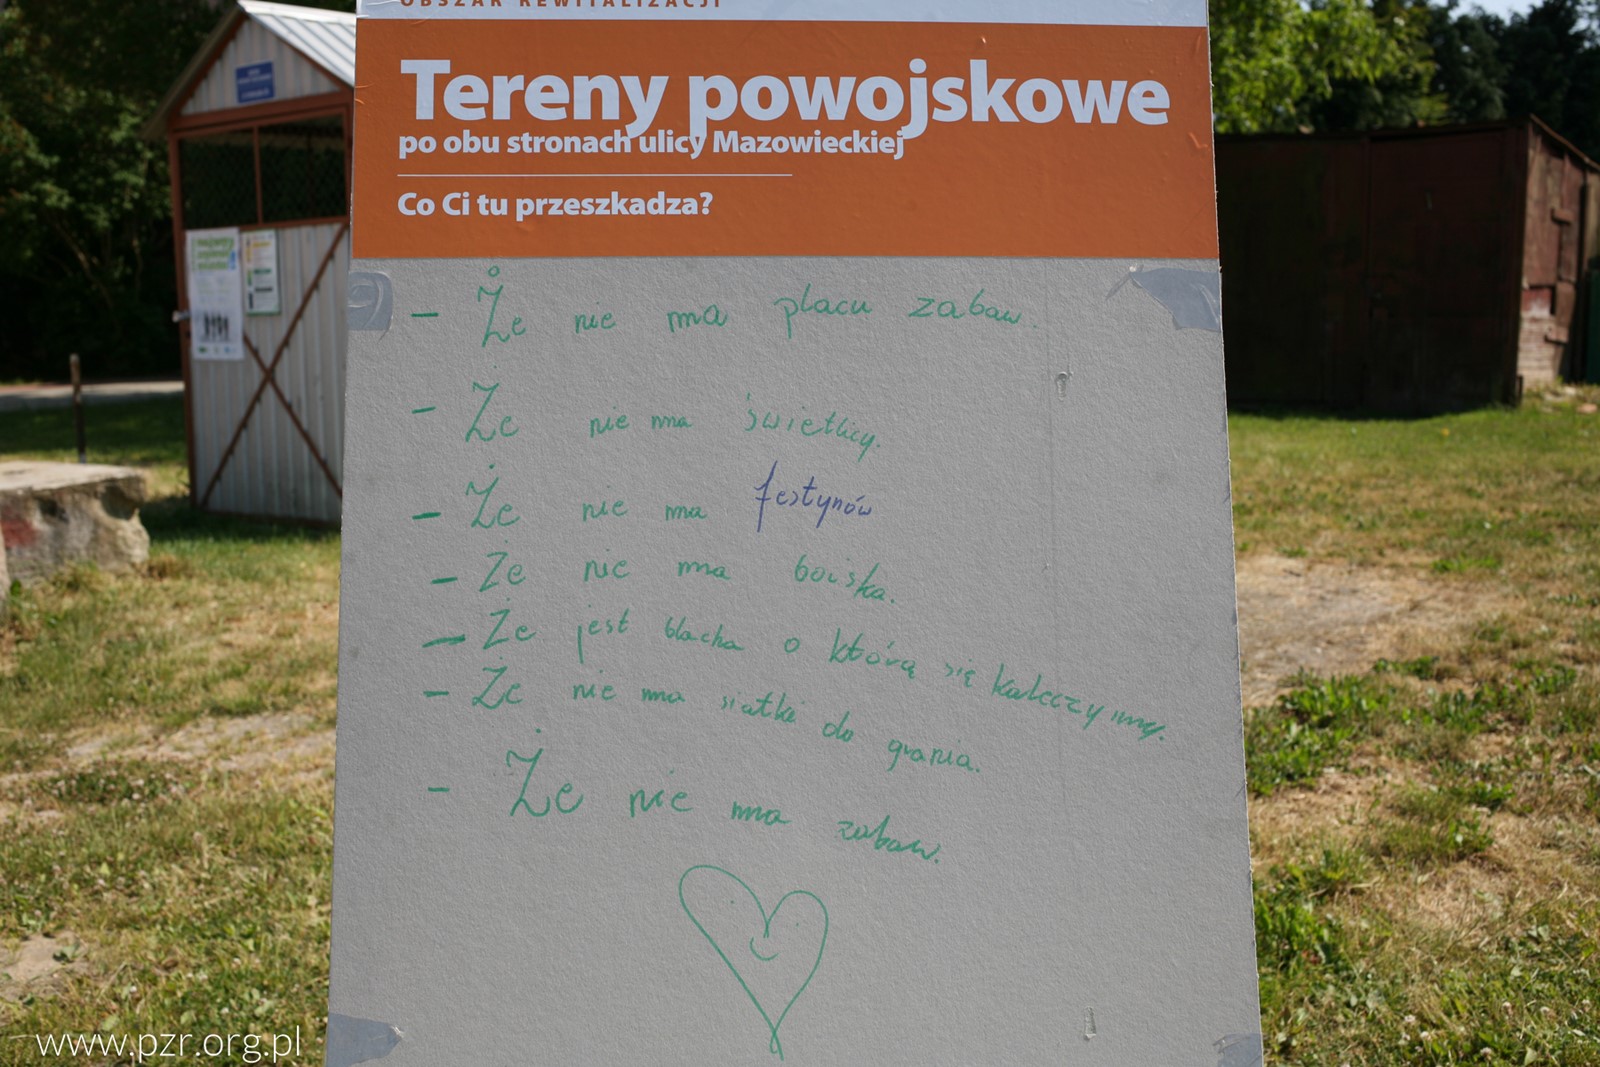 OBSZAR REWITALIZACJI
Tereny powojskowe
po obu stronach ulicy Mazowieckiej
Co Ci tu przeszkadza?
- Że nie ma placu zabaw.
- Że nie ma świetlicy.
- Że nie ma festynów
- Że nie ma boiska.
- Że jest blacha o którą się kaleczymy.
- Że nie ma siatki do grania.
- Że nie ma zabaw.
www.pzr.org.pl